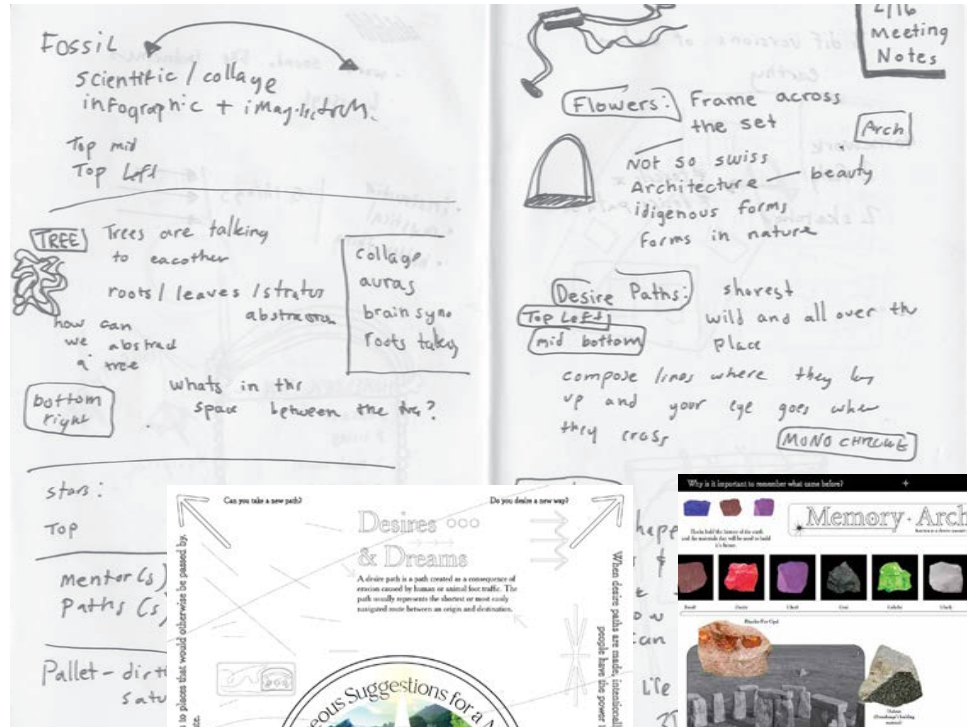 Fossil
scientific / collage
infographic +
Top mid
Top Left
TREE Trees are talking
to eacother
roots / leaves / stratus
abstraction
how can
we abstract
a tree
collage
auras
brain syno
roots talking
bottom
right
whats in the
space between the tree?
stars:
Top
mentor(s)
paths(s)
Pallet-
satu
2/16
Meeting
Notes
Flowers: Frame across
the set
Arch
Not so swiss
Architecture — beauty
idigenous forms
forms in nature
Desire Paths: shorest
Top Left
mid bottom
wild and all over the
place
compose lines where they
up and your eye goes when
they cross
MONOCHROME
happ
can
Life
Can you take a new path?
Do you desire a new way?
Desires
& Dreams
A desire path is a path created as a consequence of
erosion caused by human or animal foot traffic. The
path usually represents the shortest or most easily
navigated route between an origin and destination.
to places that would otherwise be passed by.
When desire paths are made, intentional
people have the power
eous Suggestions for a
Why is it important to remember what came before?
Memory · Arch
Rocks hold the history of the earth
and the materials that will be used to build